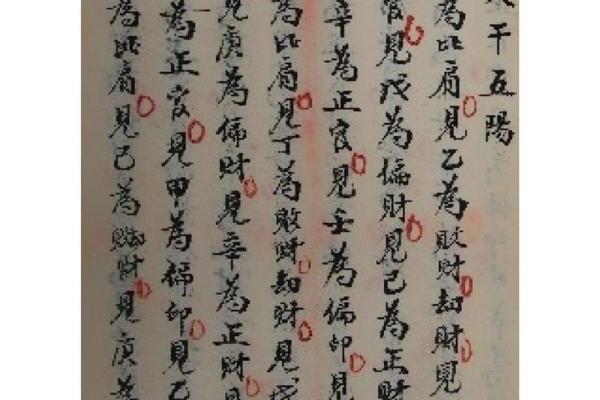 天干五陽
為比肩見乙為敗財劫財見
官見戊為偏財見己為正財
辛為正官見壬為偏印見
為比肩見丁為敗財劫財見戊
見庚為偏財見辛為正財見
為正官見甲為偏印見乙
為比肩見己為敗財見庚為